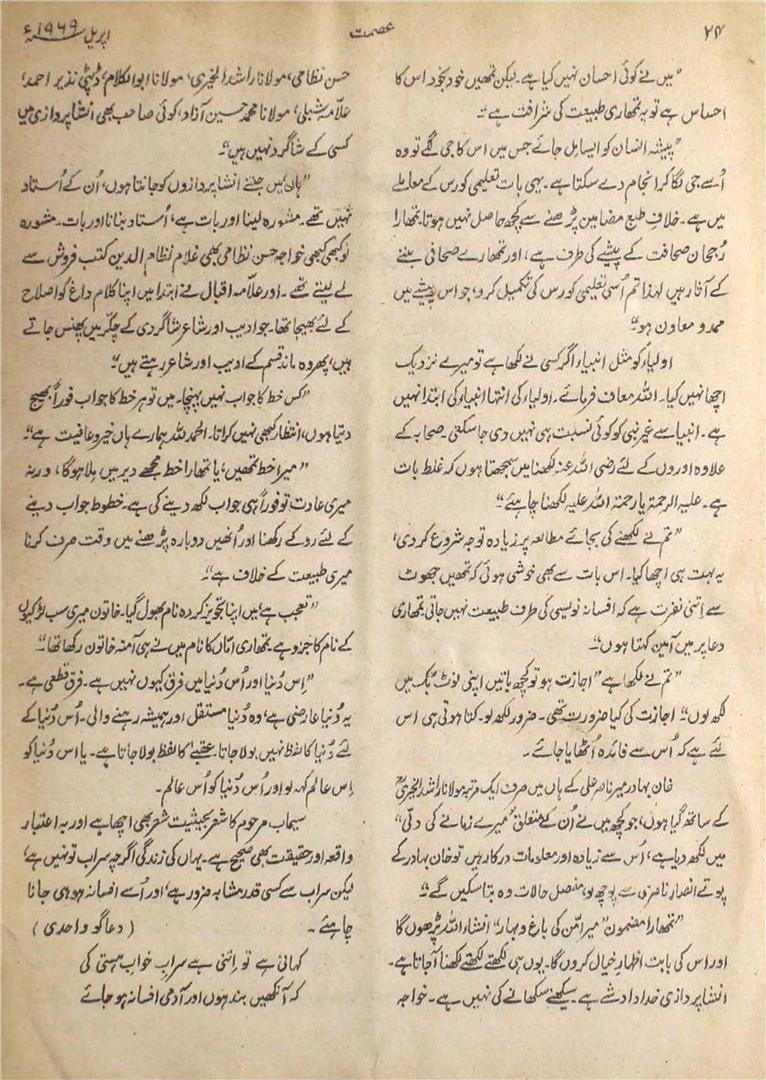 ۲۴
عصمت
اپریل ۱۹۶۹ء
"میں نے کوئی احسان نہیں کیا ہے۔ لیکن تمھیں خود بخود اس کا
احساس ہے تو یہ تمھاری طبیعت کی شرافت ہے"۔
"پیشہ انسان کو ایسا مل جائے جس میں اس کا جی لگے تو وہ
اُسے جی لگا کر انجام دے سکتا ہے۔ یہی بات تعلیمی کورس کے معاملے
میں ہے۔ خلافِ طبع مضامین پڑھنے سے کچھ حاصل نہیں ہوتا۔ تمھارا
رُجحان صحافت کے پیشے کی طرف ہے، اور تمھارے صحافی بننے
کے آثار ہیں لہٰذا تم اُسی تعلیمی کورس کی تکمیل کرو، جو اس پیشے میں
ممد و معاون ہو"۔
اولیاء کو مثل انبیاء اگر کسی نے لکھا ہے تو میرے نزدیک
اچھا نہیں کیا۔ اللہ معاف فرمائے۔ اولیاء کی انتہا انبیاء کی ابتدا نہیں
ہے۔ انبیا سے غیر نبی کو کوئی نسبت ہی نہیں دی جا سکتی۔ صحابہ کے
علاوہ اوروں کے لئے رضی اللہ عنہ لکھنا میں سمجھتا ہوں کہ غلط بات
ہے۔ علیہ الرحمۃ یا رحمتہ اللہ علیہ لکھنا چاہئے"۔
"تم نے لکھنے کی بجائے مطالعہ پر زیادہ توجہ شروع کر دی،
یہ بہت ہی اچھا کیا۔ اس بات سے بھی خوشی ہوئی کہ تمھیں جھوٹ
سے اِتنی نفرت ہے کہ افسانہ نویسی کی طرف طبیعت نہیں جاتی تمھاری
دعا پر میں آمین کہتا ہوں"۔
"تم نے لکھا ہے" اجازت ہو تو کچھ باتیں اپنی نوٹ بُک میں
لکھ لوں"۔ اجازت کی کیا ضرورت تھی۔ ضرور لکھ لو۔ کتا ہوتی ہی اس
لئے ہے کہ اُس سے فائدہ اُٹھایا جائے۔
خان بہادر میر ناصر علی کے ہاں میں صرف ایک مرتبہ مولانا راشد الخیریؒ
کے ساتھ گیا ہوں، جو کچھ میں نے اُن کے متعلق "میرے زمانے کی دلّی"
میں لکھ دیا ہے، اُس سے زیادہ اور معلومات درکار ہیں تو خان بہادر کے
پوتے انصار ناصری سے پوچھ لو، مفصل حالات وہ بتا سکیں گے"۔
"تمھارا مضمون" میر امّن کی باغ و بہار" انشاء اللہ پڑھوں گا
اور اس کی بابت اظہارِ خیال کروں گا۔ یوں ہی لکھتے لکھتے لکھنا آ جاتا ہے۔
انشا پردازی خداداد شے ہے۔ سیکھنے سکھانے کی نہیں ہے۔ خواجہ
حسن نظامی، مولانا راشد الخیری، مولانا ابوالکلام، ڈپٹی نذیر احمد،
علّامہ شبلی، مولانا محمد حسین آزاد، کوئی صاحب بھی انشا پردازی میں
کسی کے شاگرد نہیں ہیں"۔
"ہاں میں جتنے انشا پردازوں کو جانتا ہوں، اُن کے اُستاد
نہیں تھے۔ مشورہ لینا اور بات ہے، اُستاد بنانا اور بات۔ مشورہ
تو کبھی کبھی خواجہ حسن نظامی بھی غلام نظام الدین کتب فروش سے
لے لیتے تھے۔ اور علّامہ اقبال نے ابتدا میں اپنا کلام داغ کو اصلاح
کے لئے بھیجا تھا۔ جو ادیب اور شاعر شاگردی کے چکر میں پھنس جاتے
ہیں، پھر وہ ماند قسم کے ادیب اور شاعر رہتے ہیں"۔
"کس خط کا جواب نہیں پہنچا۔ میں تو ہر خط کا جواب فوراً بھیج
دیتا ہوں، انتظار کبھی نہیں کراتا۔ الحمد للہ ہمارے ہاں خیر و عافیت ہے"۔
"میرا خط تمھیں، یا تمھارا خط مجھے دیر میں ملا ہوگا، ورنہ
میری عادت تو فوراً ہی جواب لکھ دینے کی ہے۔ خطوط جواب دینے
کے لئے روکے رکھنا اور اُنھیں دوبارہ پڑھنے میں وقت صرف کرنا
میری طبیعت کے خلاف ہے"۔
"تعجب ہے میں اپنا تجویز کردہ نام بھول گیا۔ خاتون میری سب لڑکیوں
کے نام کا جزو ہے۔ تمھاری امّاں کا نام میں نے ہی آمنہ خاتون رکھا تھا"۔
"اِس دُنیا اور اُس دُنیا میں فرق کیوں نہیں ہے۔ فرق قطعی ہے۔
یہ دُنیا عارضی ہے، وہ دُنیا مستقل اور ہمیشہ رہنے والی۔ اُس دُنیا کے
لئے دُنیا کا لفظ نہیں بولا جاتا۔ عقبےٰ کا لفظ بولا جاتا ہے۔ یا اس دُنیا کو
اِس عالم کہہ لو اور اُس دُنیا کو اُس عالم۔
سیماب مرحوم کا شعر بحیثیت شعر بھی اچھا ہے اور بہ اعتبار
واقعہ اور حقیقت بھی صحیح ہے۔ یہاں کی زندگی اگرچہ سراب تو نہیں ہے،
لیکن سراب سے کسی قدر مشابہ ضرور ہے، اور اُسے افسانہ ہو ہی جانا
چاہئے۔ (دعاگو واحدی)
کہانی ہے تو اِتنی ہے سرابِ خوابِ ہستی کی
کہ آنکھیں بند ہوں اور آدمی افسانہ ہو جائے